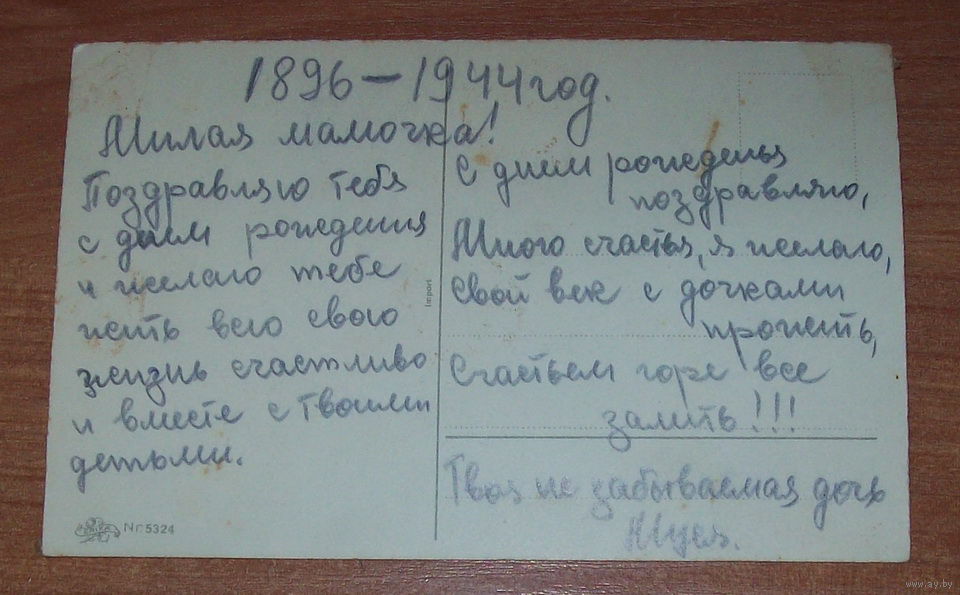 1896-1944 год.
Милая мамочка!
Поздравляю тебя
с днём рождения
и желаю тебе
жить всю свою
жизнь счастливо
и вместе с твоими
детьми.
С днём рожденья
поздравляю,
Много счастья, я желаю,
Свой век с дочками
прожить,
Счастьем горе все
залить!!!
Твоя не забываемая дочь
Муся.
Import
Nr. 5324
www.ay.by